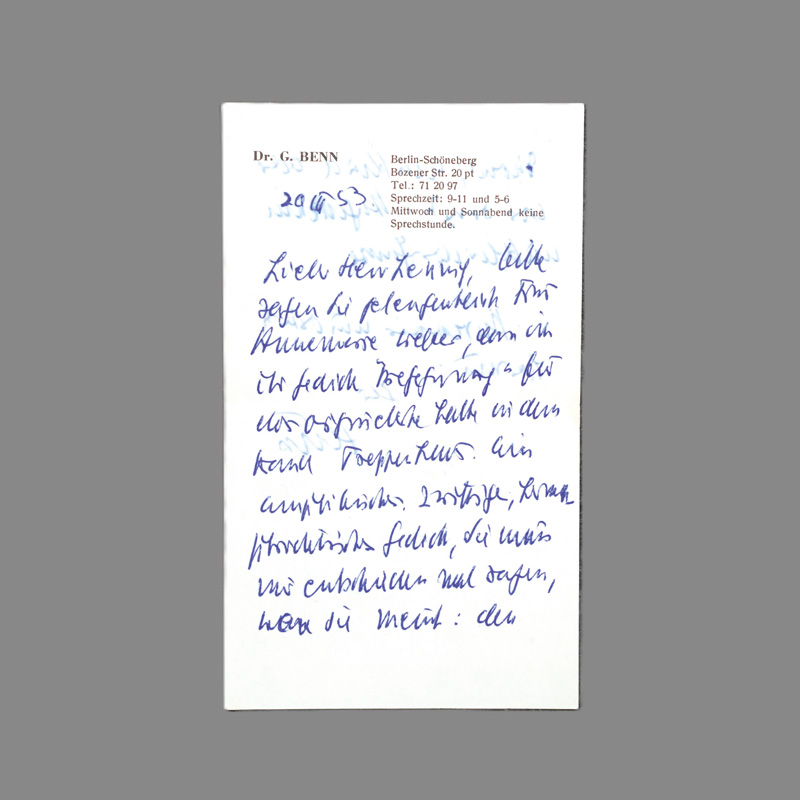 Dr. G. BENN
Berlin-Schöneberg
Bozener Str. 20 pt
Tel.: 71 20 97
Sprechzeit: 9-11 und 5-6
Mittwoch und Sonnabend keine
Sprechstunde.
20 III 53.
Lieber Herr Lennig, bitte
sagen Sie gelegentlich Frau
Annemarie Weber, dass ich
ihr Gedicht für
das originellste halte in dem
Band Ein
Gedicht, sie muss
mir entschieden mal sagen,
wen sie meint: den